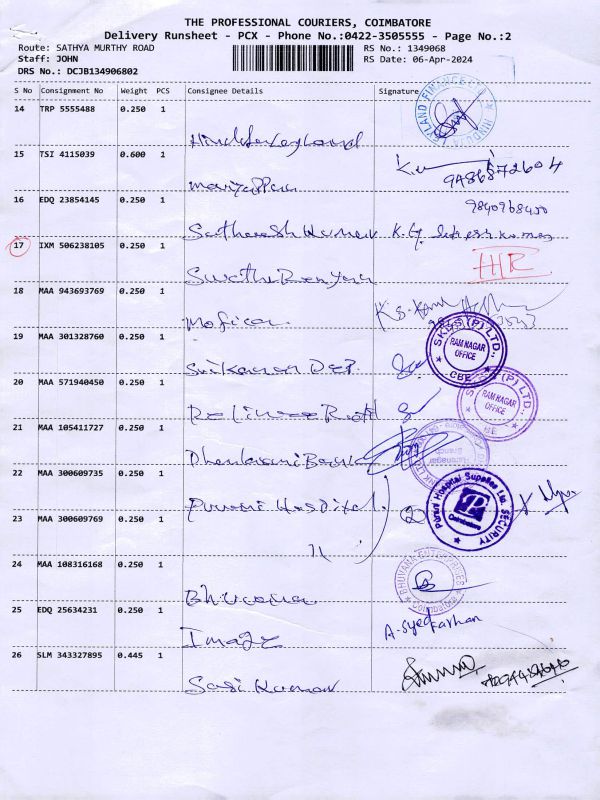 THE PROFESSIONAL COURIERS, COIMBATORE
Delivery Runsheet - PCX - Phone No.:0422-3505555 - Page No.:2
Route: SATHYA MURTHY ROAD
RS No.: 1349068
Staff: JOHN
RS Date: 06-Apr-2024
DRS No.: DCJB134906802
S No Consignment No Weight PCS Consignee Details Signature
14 TRP 5555488 0.250 1
Hinduja Leyland
LEYLAND FINANCE HINDUJA
15 TSI 4115039 0.600 1
Mariyappan
9486872604
16 EDQ 23854145 0.250 1
9840768450
Satheesh Kumar K.G.
17 IXM 506238105 0.250 1
Swathi Ramyaa
18 MAA 943693769 0.250 1
Moficon
19 MAA 301328760 0.250 1
Srikaran
SKHS (P) LTD., RAM NAGAR OFFICE CBE
20 MAA 571940450 0.250 1
(P) LTD., RAM NAGAR OFFICE
21 MAA 105411727 0.250 1
Dhanlaxmi
22 MAA 300609735 0.250 1
Hospital
Hospital Supplies SECURITY Coimbatore
23 MAA 300609769 0.250 1
11
24 MAA 108316168 0.250 1
Bhuvana
BHUVANA ENTERPRISES
25 EDQ 25634231 0.250 1
Image
A-syed
26 SLM 343327895 0.445 1
Sasi Kumar